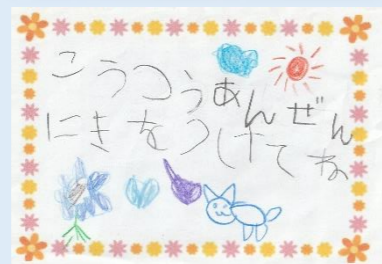 こうつうあんぜん
にきをつけてね